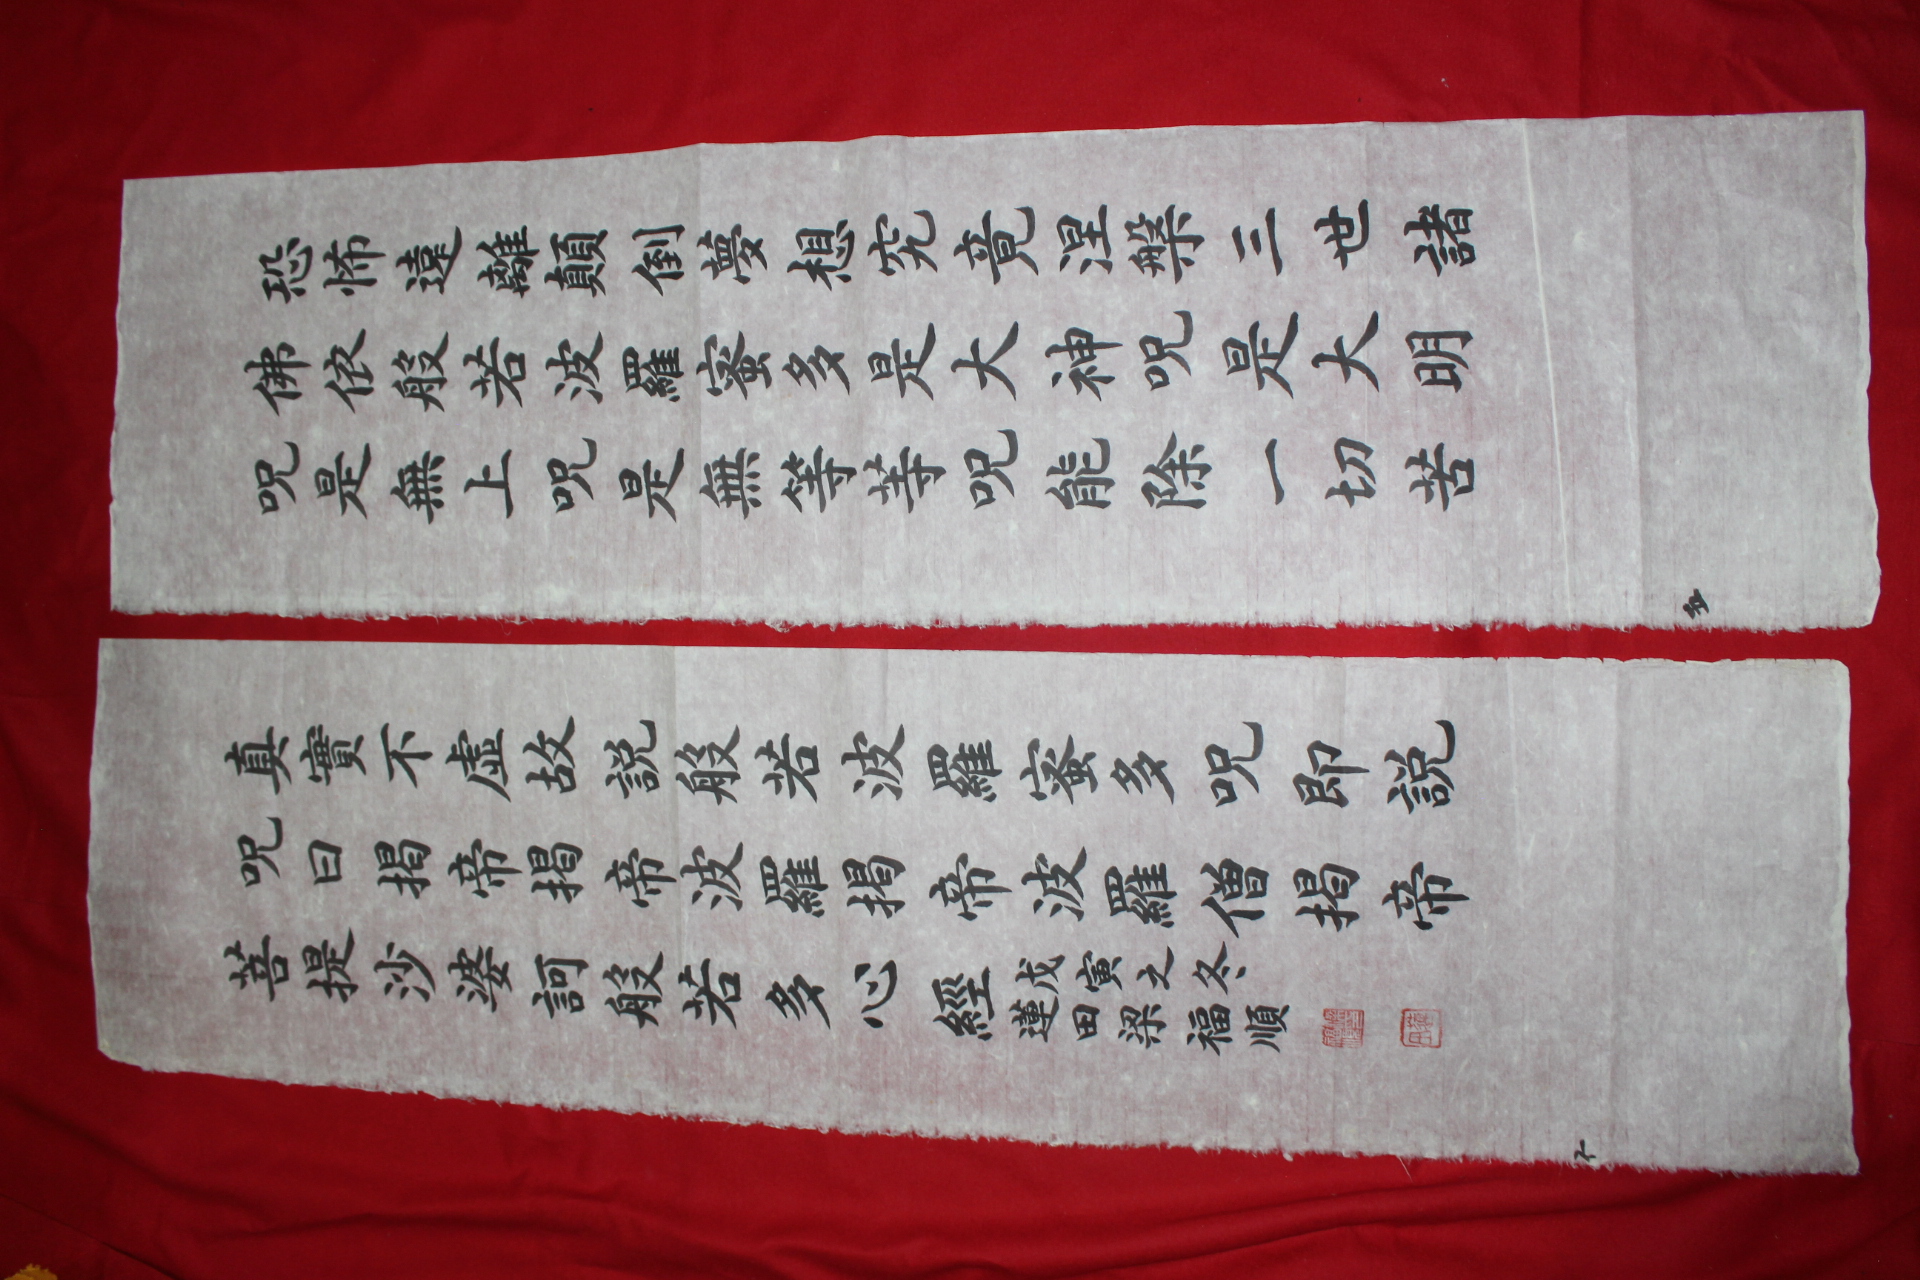 恐怖遠離顛倒夢想究竟涅槃三世諸
佛依般若波羅蜜多是大神呪是大明
呪是無上呪是無等等呪能除一切苦
五
真實不虛故説般若波羅蜜多呪即説
呪曰揭帝揭帝波羅揭帝波羅僧揭帝
菩提沙婆訶般若多心經
戊寅之冬
蓮田梁福順